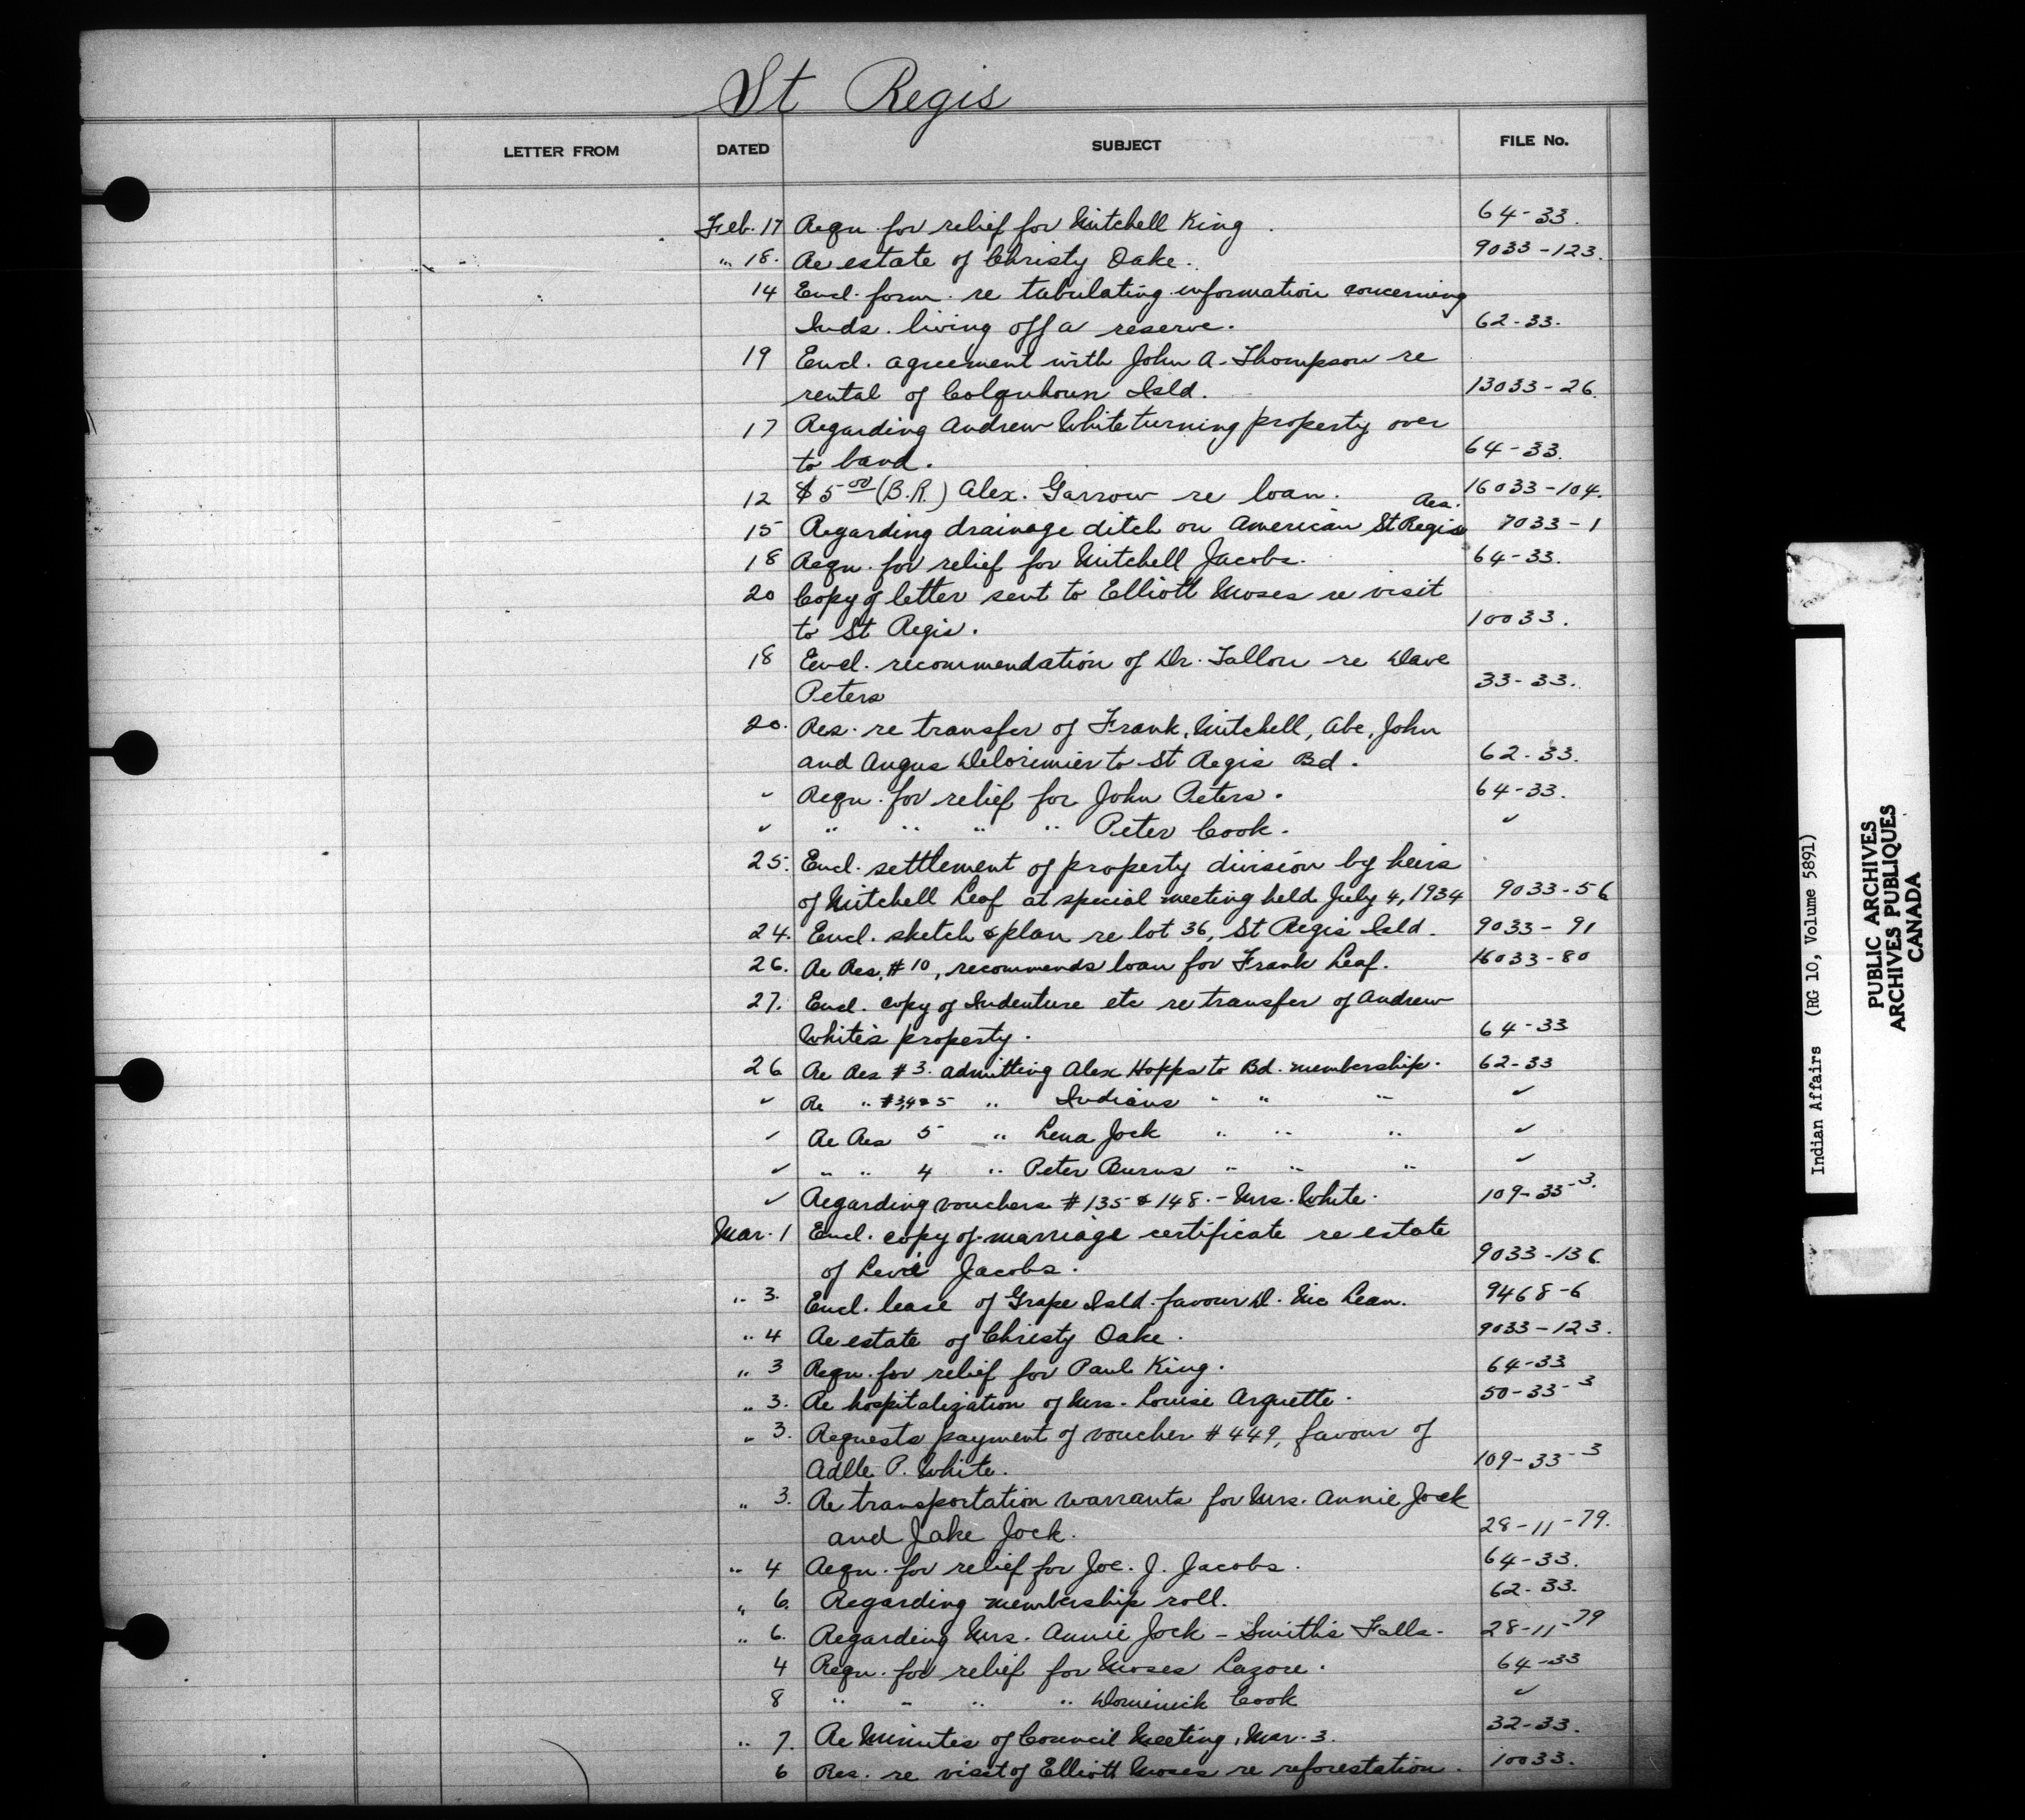 St Regis
LETTER FROM DATED SUBJECT FILE No.
Feb. 17 Reqn. for relief for Mitchell King. 64-33.
" 18. Re estate of Christy Oake. 9033-123.
14 Encl. form re tabulating information concerning
Inds. living off a reserve. 62-33.
19 Encl. agreement with John A. Thompson re
rental of Colquhoun Isld. 13033-26.
17 Regarding Andrew White turning property over
to band. 64-33.
12 $5.00 (B.R.) Alex. Garrow re loan. 16033-104.
Res.
15 Regarding drainage ditch on American St Regis 7033-1
18 Reqn. for relief for Mitchell Jacobs. 64-33.
20 Copy of letter sent to Elliott Moses re visit
to St Regis. 10033.
18 Encl. recommendation of Dr. Tallon re Dave
Peters 33-33.
20. Res. re transfer of Frank, Mitchell, Abe, John
and Angus Delorimier to St Regis Bd. 62-33.
" Reqn. for relief for John Peters. 64-33.
" " " " " Peter Cook. "
25. Encl. settlement of property division by heirs
of Mitchell Leaf at special meeting held July 4, 1934 9033-56
24. Encl. sketch & plan re lot 36, St Regis Isld. 9033-91
26. Re Res. #10, recommends loan for Frank Leaf. 16033-80
27. Encl. copy of Indenture etc re transfer of Andrew
White's property. 64-33
26 Re Res #3. admitting Alex Hopps to Bd. membership. 62-33
" Re " #3,4&5 " Indians " " " "
" Re Res 5 " Lena Jock " " " "
" " " 4 " Peter Burns " " " "
" Regarding vouchers #135 & 148. - Mrs. White. 109-33-3.
Mar. 1 Encl. copy of marriage certificate re estate
of Levi Jacobs. 9033-136.
" 3. Encl. lease of Grape Isld. favour D. McLean. 9468-6
" 4 Re estate of Christy Oake. 9033-123.
" 3 Reqn. for relief for Paul King. 64-33
" 3. Re hospitalization of Mrs. Louise Arquette. 50-33-3
" 3. Requests payment of voucher #449, favour of
Adlle P. White. 109-33-3
" 3. Re transportation warrants for Mrs. Annie Jock
and Jake Jock. 28-11-79.
" 4 Reqn. for relief for Joe. J. Jacobs. 64-33.
" 6. Regarding membership roll. 62-33.
" 6. Regarding Mrs. Annie Jock - Smith's Falls. 28-11-79
4 Reqn. for relief for Moses Lazore. 64-33
8 " " " " Dominick Cook "
" 7. Re Minutes of Council Meeting, Mar. 3. 32-33.
6 Res. re visit of Elliott Moses re reforestation. 10033.
Indian Affairs (RG 10, Volume 5891)
PUBLIC ARCHIVES
ARCHIVES PUBLIQUES
CANADA